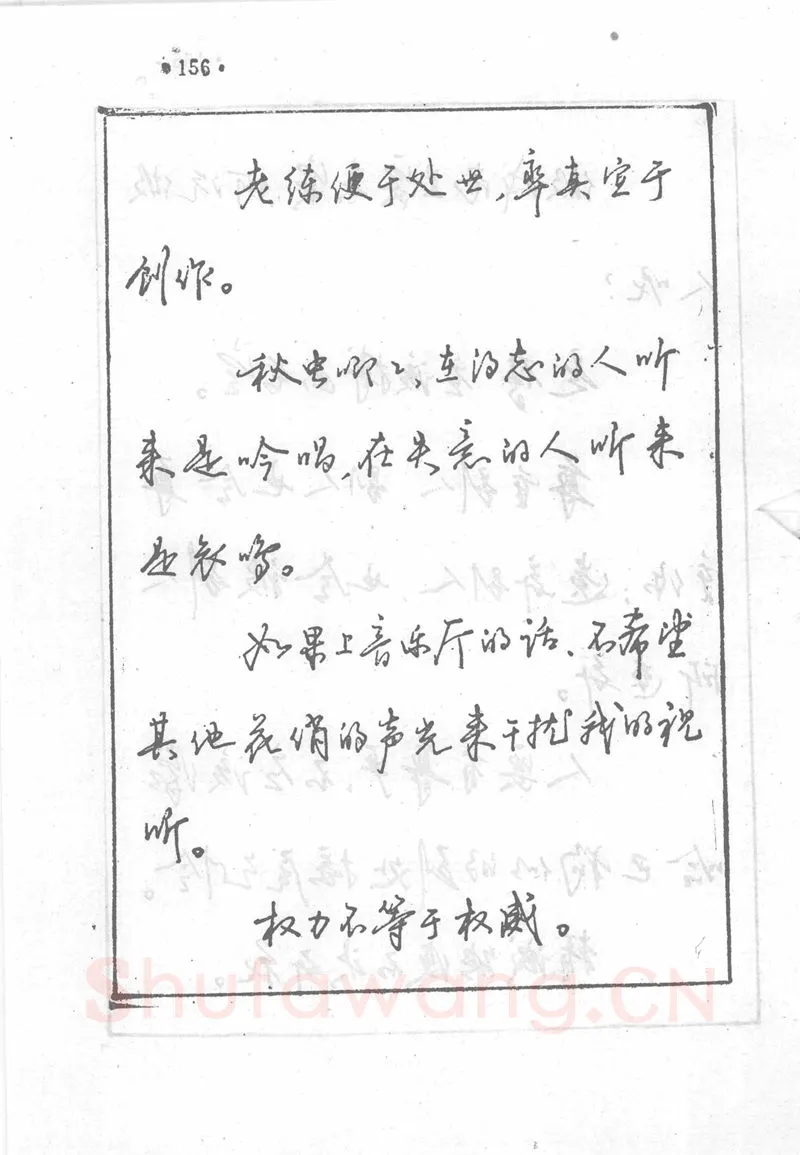 ·156·
老练便于处世,率真宜于
创作。
秋虫唧々,在得志的人听
来是吟唱,在失意的人听来
是哀鸣。
如果上音乐厅的话、不希望
其他花俏的声光来干扰我的视
听。
权力不等于权威。
Shufawang.CN